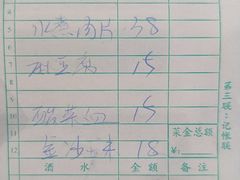 5 水煮肉片 38
6
7 麻豆腐 15
8
9
10 酸菜 15
11 菜金总额
12 18 ¥:
酒水 金额 备注
第三联:记帐联